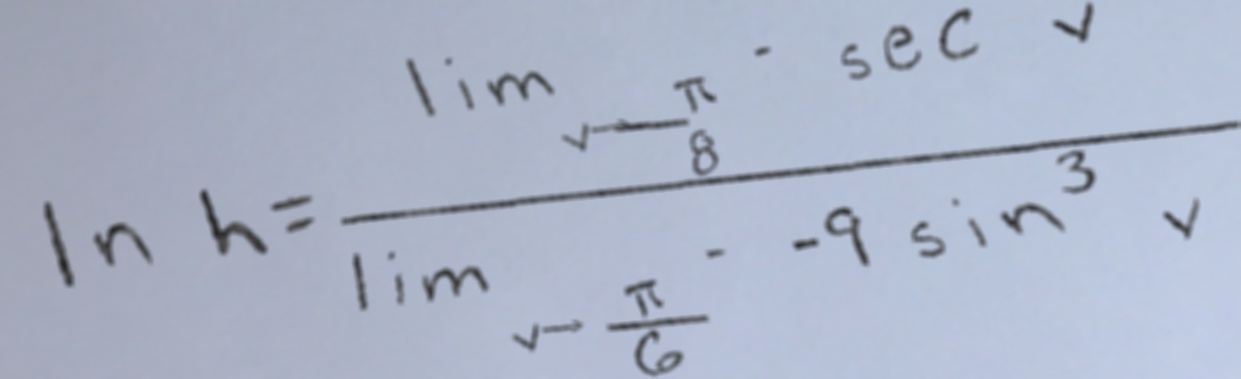 ln h = \frac{\lim_{v \to \frac{\pi}{8}^-} \sec v}{\lim_{v \to \frac{\pi}{6}^-} -9 \sin^3 v}